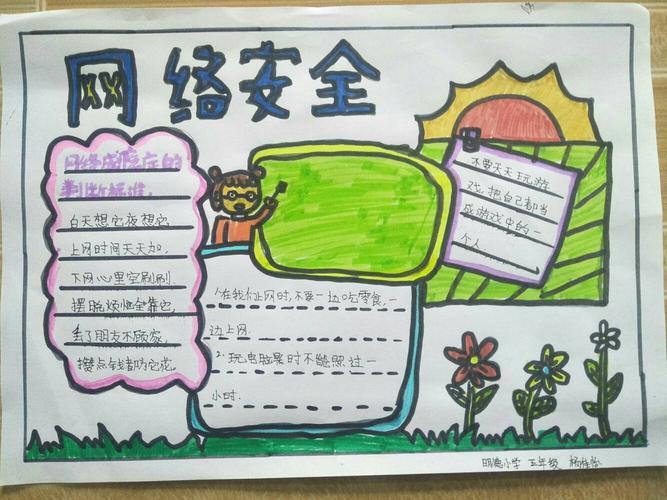 网络安全
网络成瘾症的
判断标准:
白天想它夜想它,
上网时间天天加,
下网心里空刷刷,
摆脱烦恼全靠它,
丢了朋友不顾家,
攒点钱都防它花。
1、在我们上网时,不要一边吃零食,一
边上网
2、玩电脑是时不能照过一
小时.
不要天天玩游
戏,把自己都当
成游戏中的一
个人
明德小学 五年级 杨